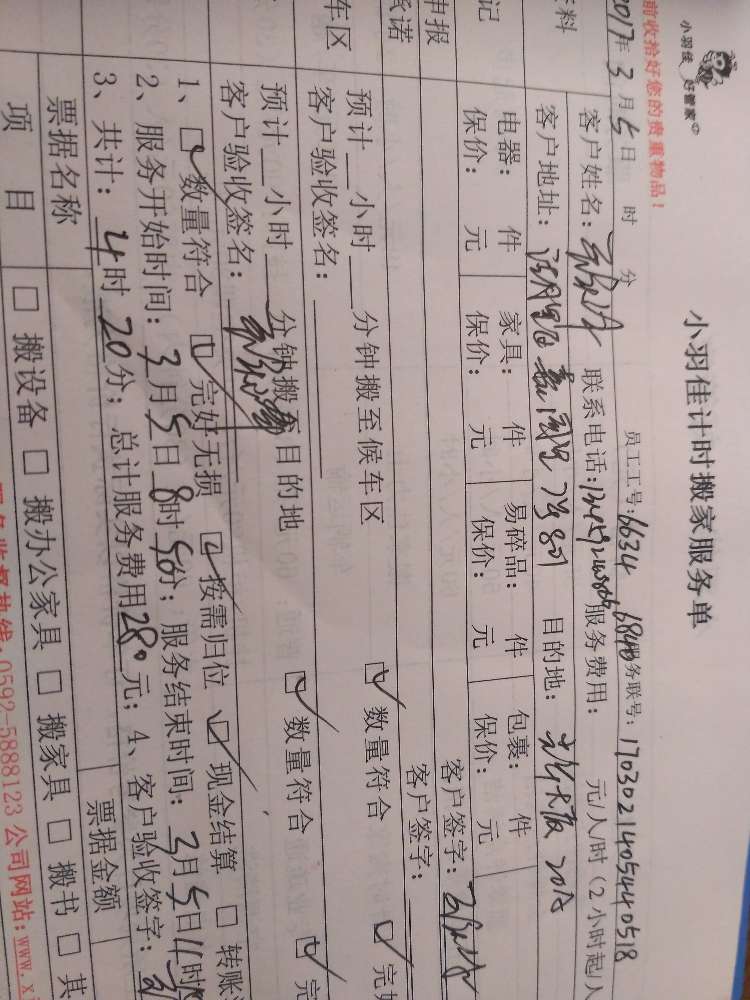 小羽佳 好管家
小羽佳计时搬家服务单
前收拾好您的贵重物品！
员工工号：6634 6840 服务联号：1703021405440518
2017年3月5日 时 分
客户姓名： 联系电话： 服务费用： 元/人/时（2小时起/人
资料
客户地址： 目的地： 20A
电器： 件 家具： 件 易碎品： 件 包裹： 件
记
保价： 元 保价： 元 保价： 元 保价： 元
申报
客户签字：
承诺
客户签字：
车区
预计 小时 分钟搬至候车区 数量符合 完好
客户验收签名：
预计 小时 分钟搬至目的地 数量符合 完
客户验收签名：
1、 数量符合 完好无损 按需归位 现金结算 转账
2、服务开始时间：3月5日8时 分；服务结束时间：3月5日11时
3、共计：4时20分；总计服务费用280元；4、客户验收签字：
票据名称 票据金额
项 目 搬设备 搬办公家具 搬家具 搬书 其
服务监督热线：0592-5888123 公司网站：www.xi